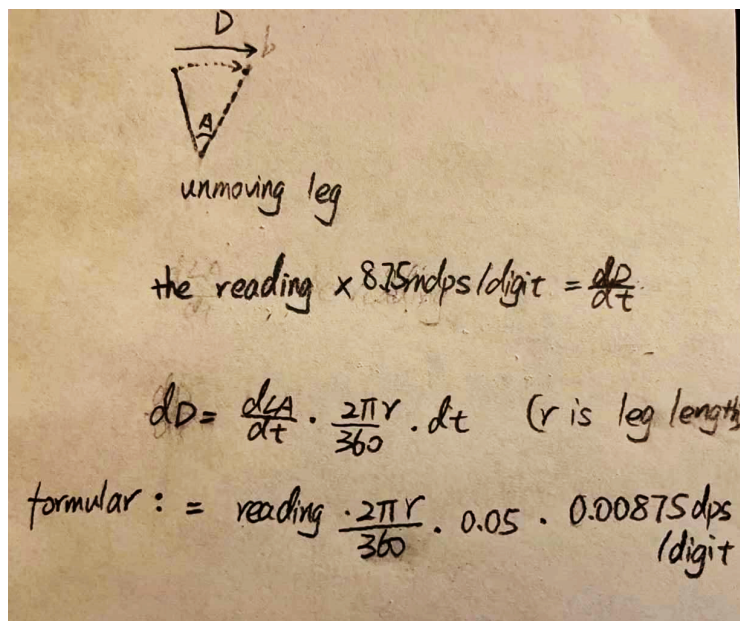 D
b
A
unmoving leg
the reading × 8.75mdps/digit = dD/dt
dD = d∠A/dt · 2πr/360 · dt (r is leg length
formular : = reading · 2πr/360 · 0.05 · 0.00875dps
/digit